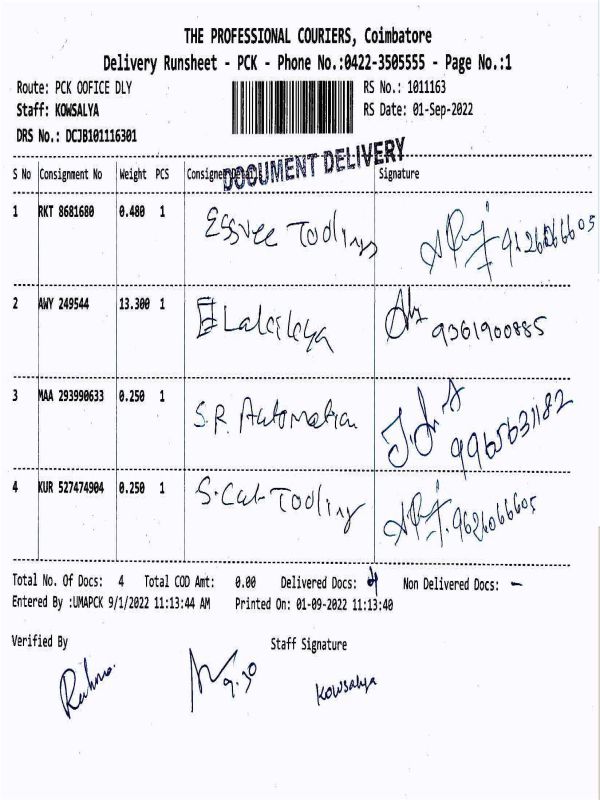 THE PROFESSIONAL COURIERS, Coimbatore
Delivery Runsheet - PCK - Phone No.:0422-3505555 - Page No.:1
Route: PCK OOFICE DLY
RS No.: 1011163
Staff: KOWSALYA
RS Date: 01-Sep-2022
DRS No.: DCJB101116301
DOCUMENT DELIVERY
S No Consignment No Weight PCS Consignee Details Signature
1 RKT 8681680 0.480 1 Essvee Toolings
2 AWY 249544 13.300 1 9361900885
3 MAA 293990633 0.250 1 S.R. Automation 9965631182
4 KUR 527474904 0.250 1 S.Cut Tooling 9626066605
Total No. Of Docs: 4 Total COD Amt: 0.00 Delivered Docs: 4 Non Delivered Docs: -
Entered By :UMAPCK 9/1/2022 11:13:44 AM Printed On: 01-09-2022 11:13:40
Verified By Staff Signature
9.30 Kowsalya